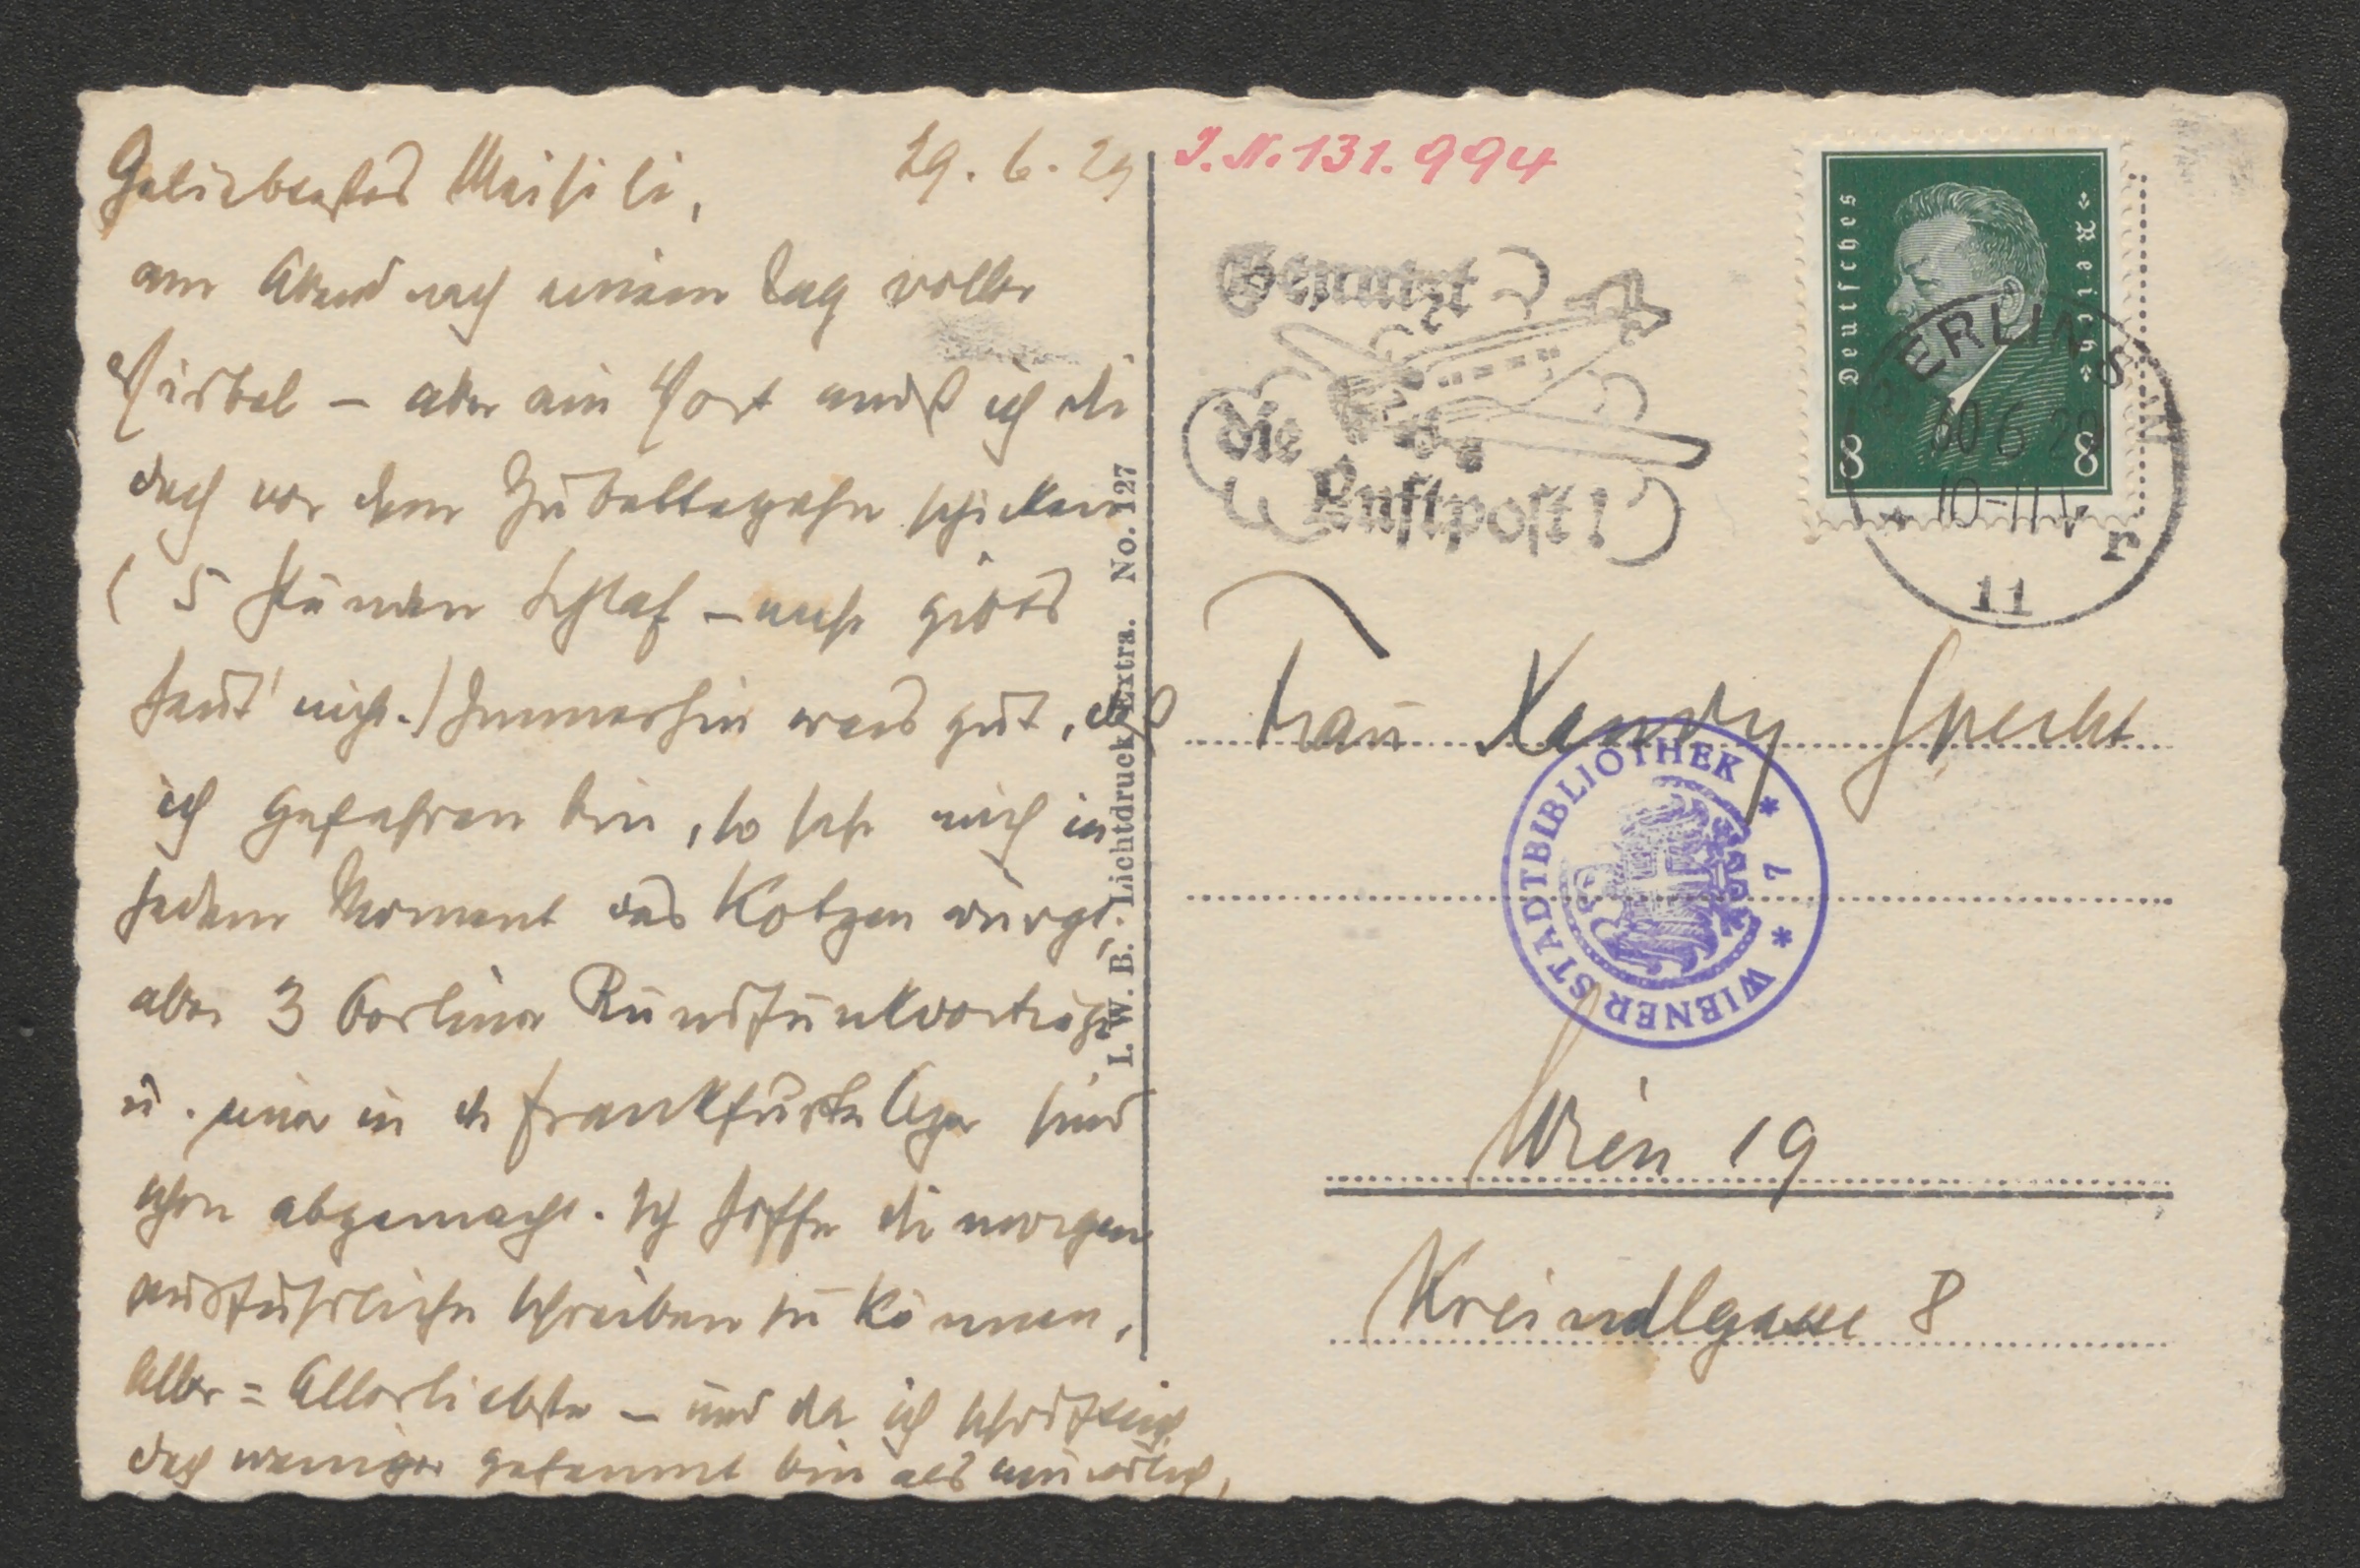 29.6.29
Geliebtestes Meisili,
am Abend nach einem Tag voller
Wirbel – aber ein Wort muß ich dir
doch vor dem Zubettegehn schicken
( 5 Stunden Schlaf – mehr gibts
heut' nicht.) Immerhin wars gut, daß
ich gefahren bin, so sehr mich in
jedem Moment das Kotzen würgt,
aber 3 Berliner Rundfunkvorträge
u. einer in der Frankfurter sind
schon abgemacht. Ich hoffe dir morgen
ausführlicher schreiben zu können,
Aller=Allerliebste – und da ich schriftlich
doch weniger gehemmt bin als mündlich,
I. W. B.-Lichtdruck Extra. No. 127
J.N. 131.994
Benutzt
die
Luftpost!
Deutsches Reich
8 8
BERLIN SW
30 6 29
10-11 V
r
11
Frau Xandy Specht
WIENER STADTBIBLIOTHEK * 7 *
Wien 19
Kreindlgasse 8